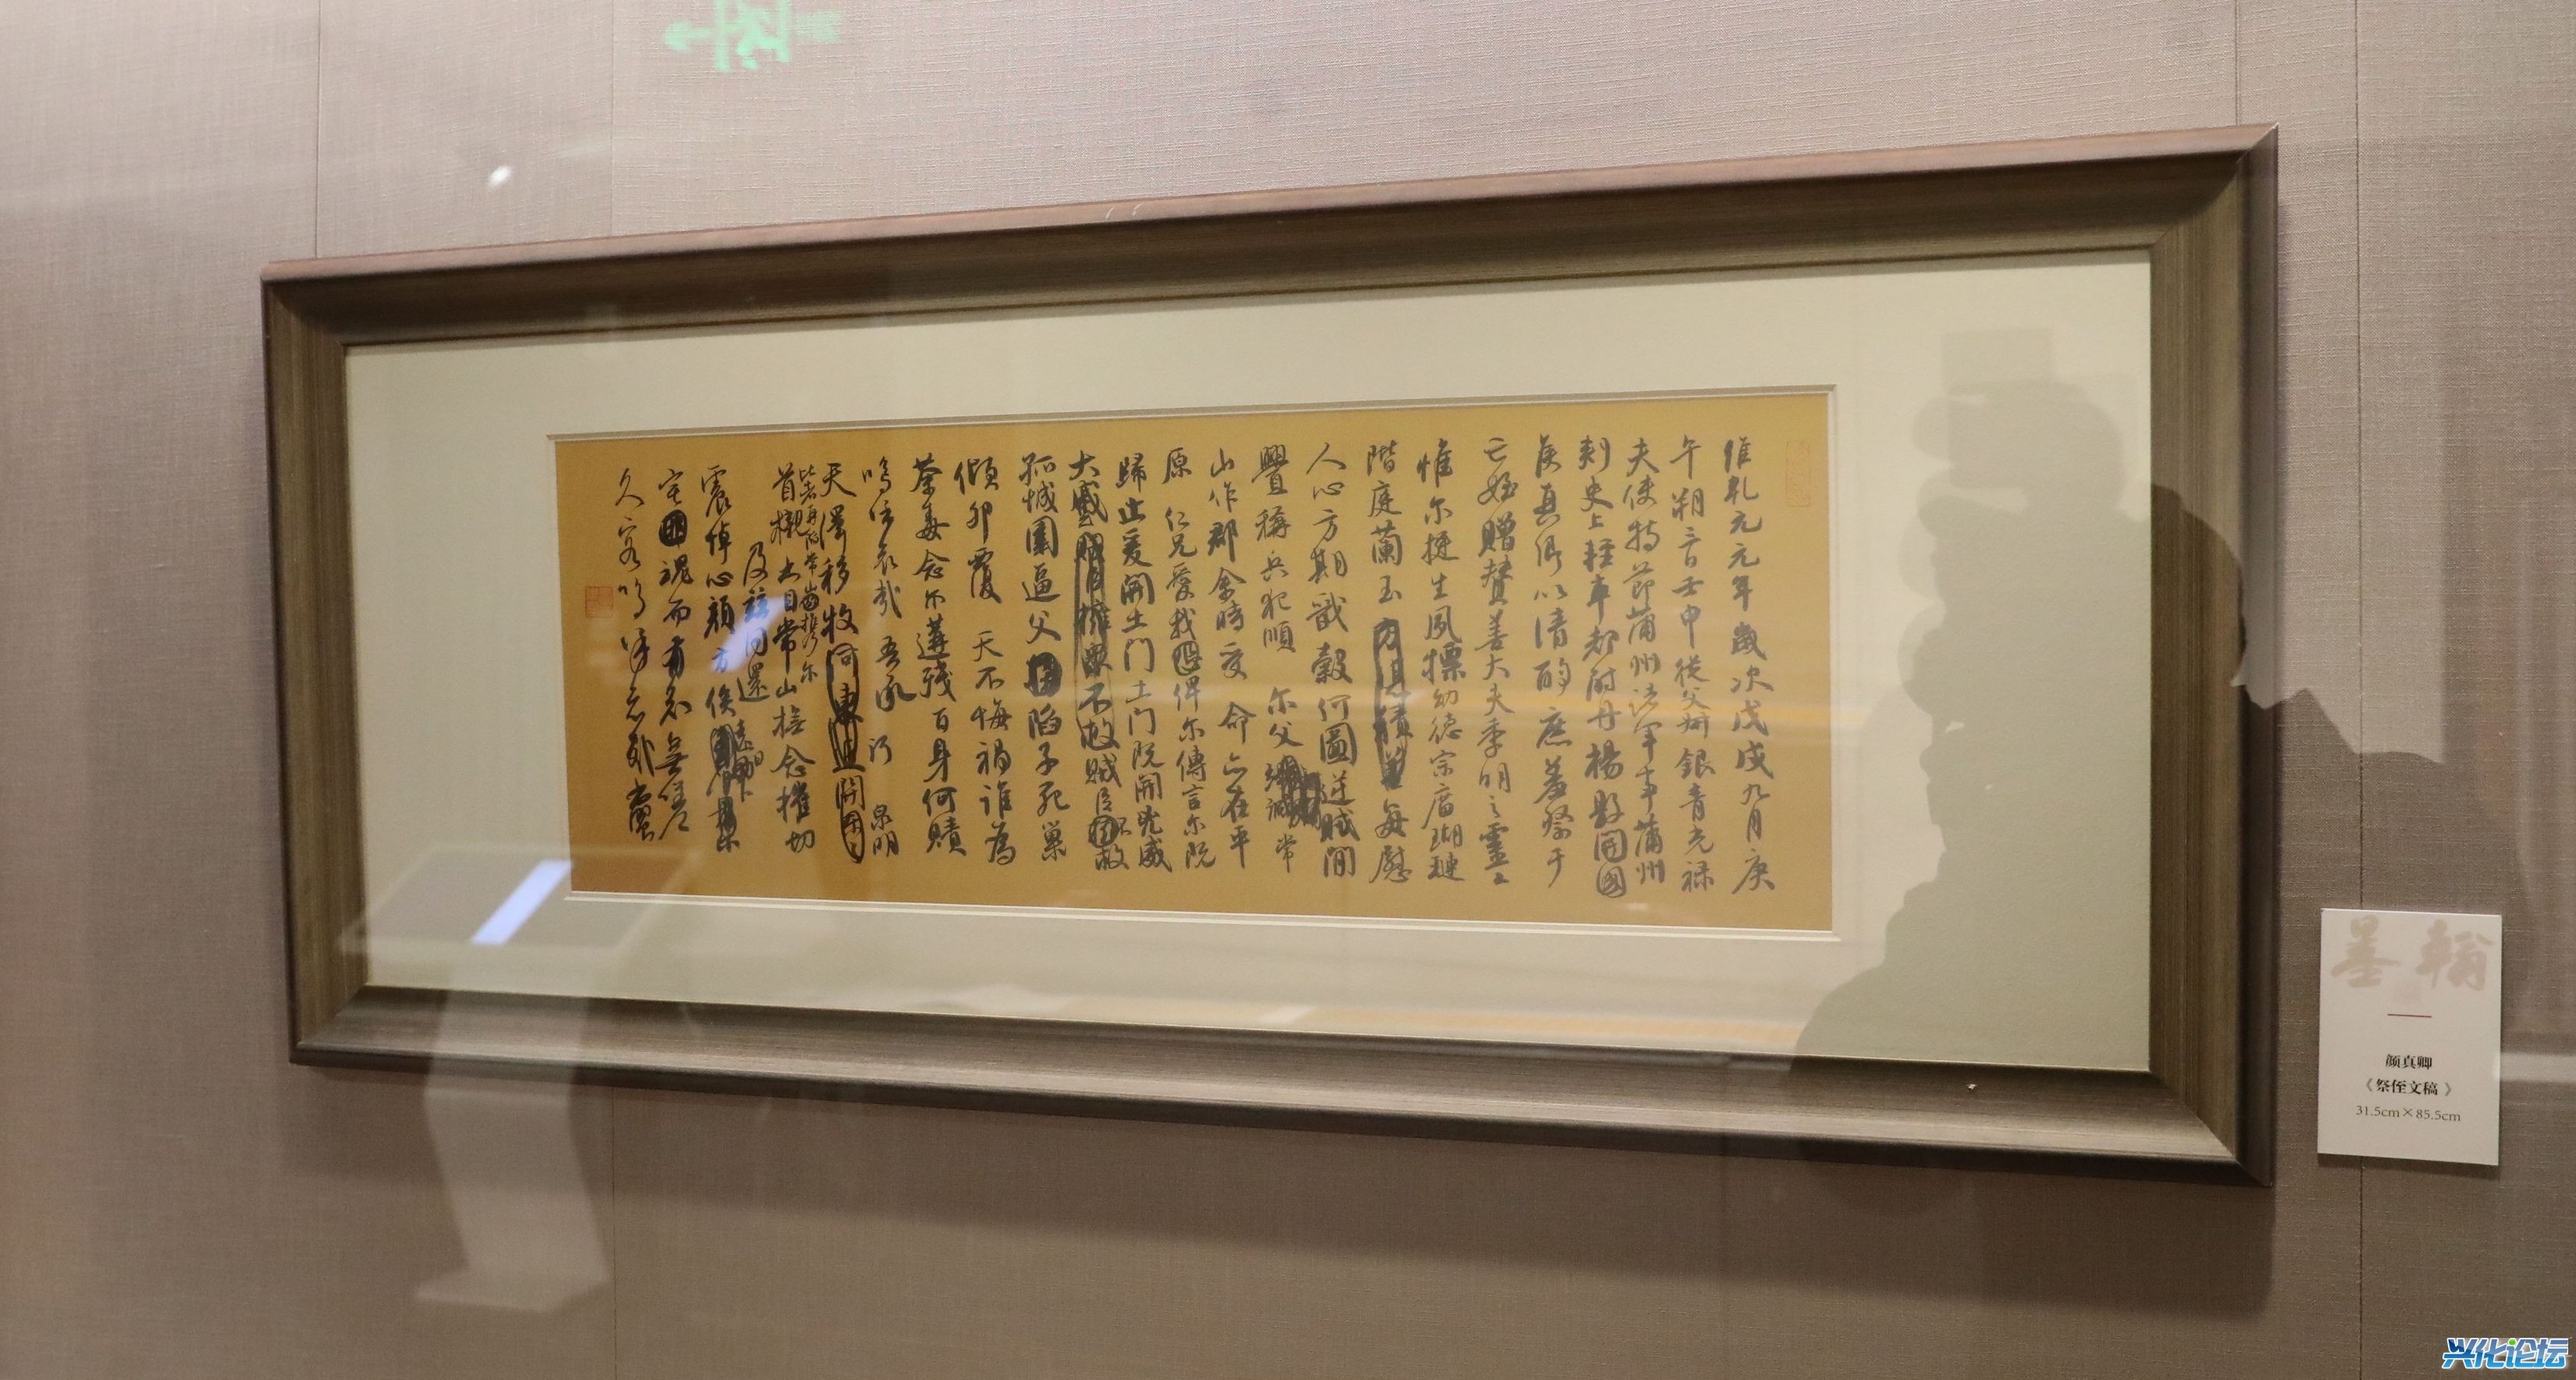 維乾元元年歲次戊戌九月庚
午朔三日壬申從父銀青光祿
夫使持節蒲州諸軍事蒲州
刺史上輕車都尉丹楊縣開國
侯真卿以清酌庶羞祭于
亡姪贈贊善大夫季明之靈
惟爾挺生夙標幼德宗廟瑚璉
階庭蘭玉每慰
人心方期戩穀何圖逆賊間
釁稱兵犯順 爾父竭誠常
山作郡余時受 命亦在平
原 仁兄愛我俾爾傳言爾既
歸止爰開土門土門既開兇威
大蹙賊臣不救
孤城圍逼父陷子死巢
傾卵覆 天不悔禍誰為
荼毒念爾遘殘百身何贖
嗚呼哀哉 吾承 泉明
天澤移牧河東
比者再陷常山攜爾
首櫬亦自常山撫念摧切
及茲同還
震悼心顏方俟
宅魂而有知無嗟
久客嗚呼哀哉尚饗
翰墨
颜真卿
《祭侄文稿》
31.5cm×85.5cm
兴化论坛